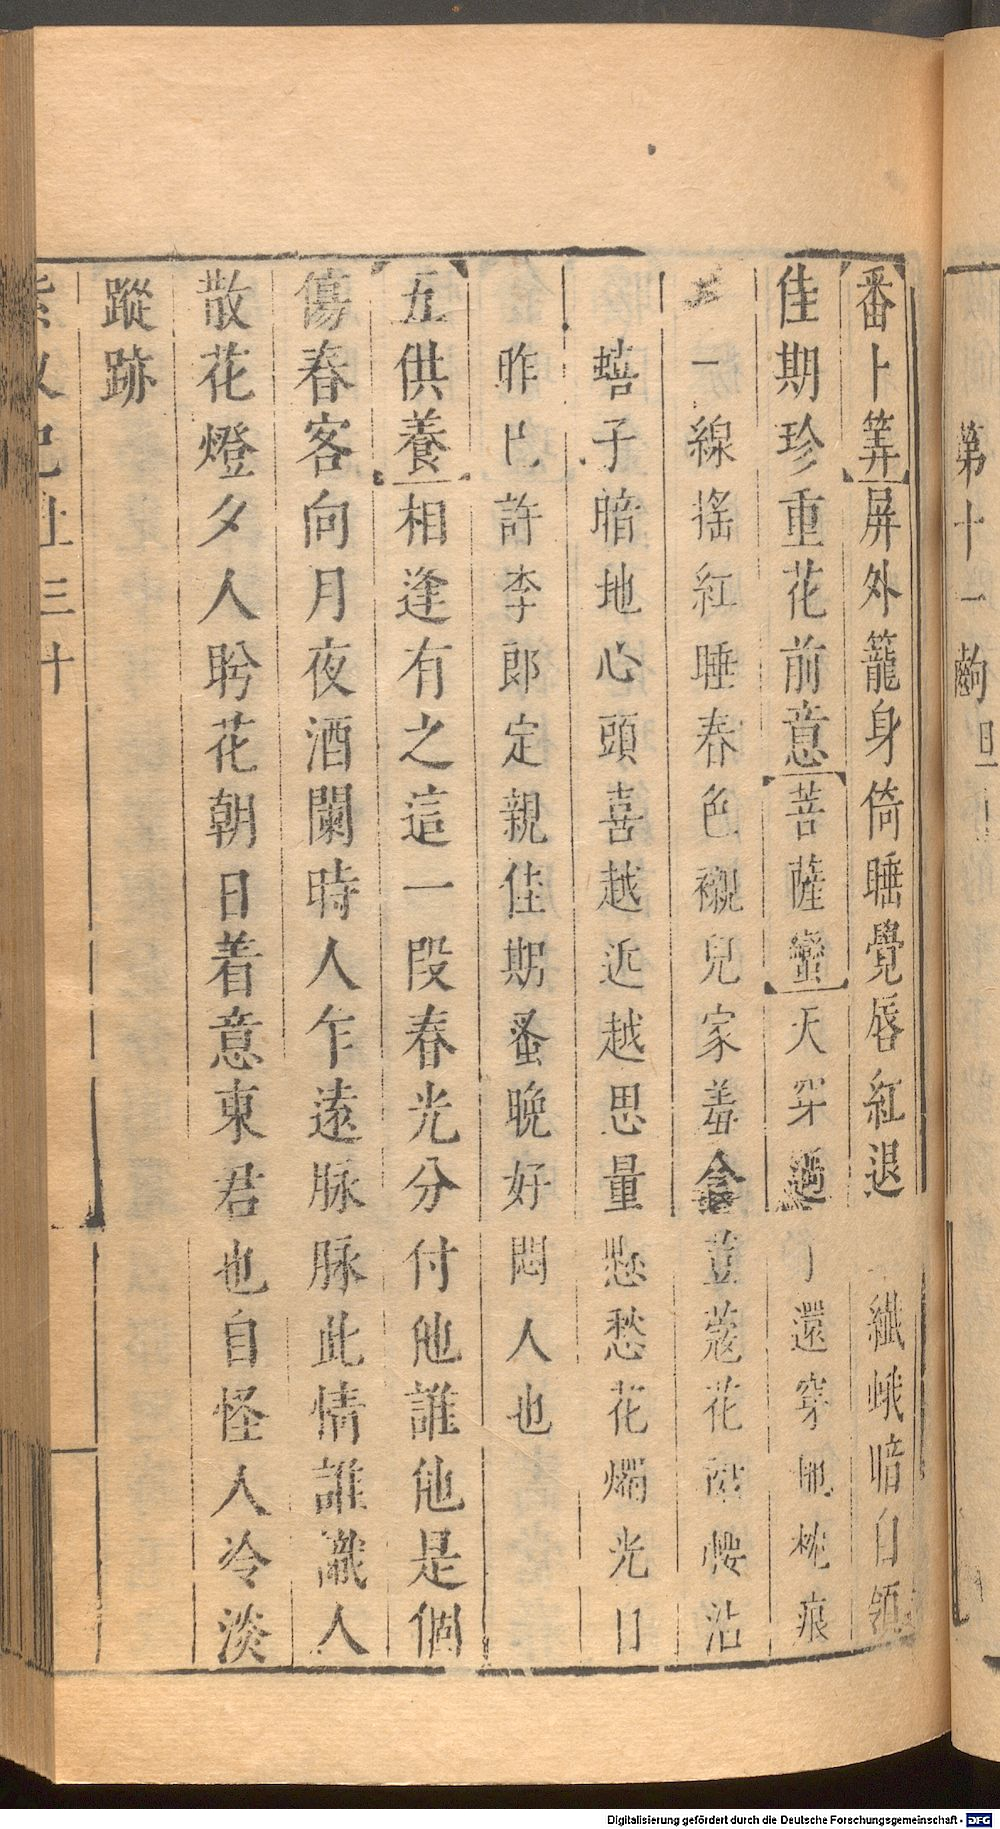 番卜筭屏外籠身倚睡覺唇紅退纖峨暗自領
佳期珍重花前意菩薩蠻天穿過了還穿地枕痕
一線搖紅睡春色襯兒家羞含荳蔻花沾
蟢子暗地心頭喜越近越思量愁愁花燭光日
昨已許李郎定親佳期蚤晚好悶人也
五供養相逢有之這一段春光分付他誰他是個
傷春客向月夜酒闌時人乍遠脉脉此情誰識人
散花燈夕人盻花朝日着意東君也自怪人冷淡
蹤跡
三十
第十一齣
Digitalisierung gefördert durch die Deutsche Forschungsgemeinschaft - DFG